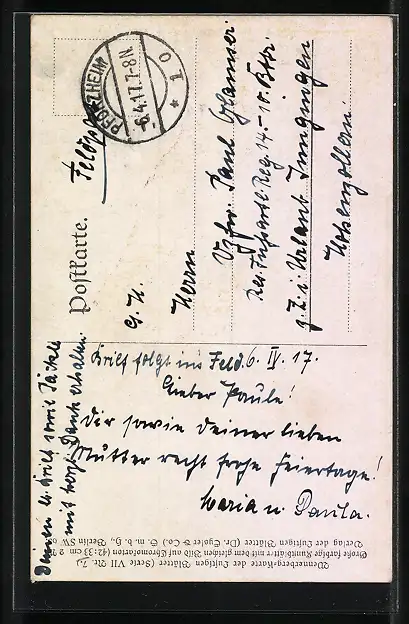 Postkarte.
Feldpost
PFORZHEIM
-6.4.17.7-8N.
* 1 0
Herrn
Vzfw. Paul
Res. Fußartl. Reg. 14. - 10. Bttr.
z. Z. i. Urlaub Jungingen
Hohenzollern
Brief folgt ins Feld. 6. IV. 17.
Lieber Paule!
Dir sowie Deiner lieben
Mutter recht frohe Feiertage!
Maria u. Paula.
Deinen lb. Brief sowie Päckle
mit herzl. Dank erhalten.
Wennerberg-Karte der Lustigen Blätter (Serie VII Nr. 7.)
Große farbige Kunstblätter mit dem gleichen Bild auf Chromokarton (42:33 cm)
Verlag der Lustigen Blätter (Dr. Eysler & Co.) G. m. b. H., Berlin SW